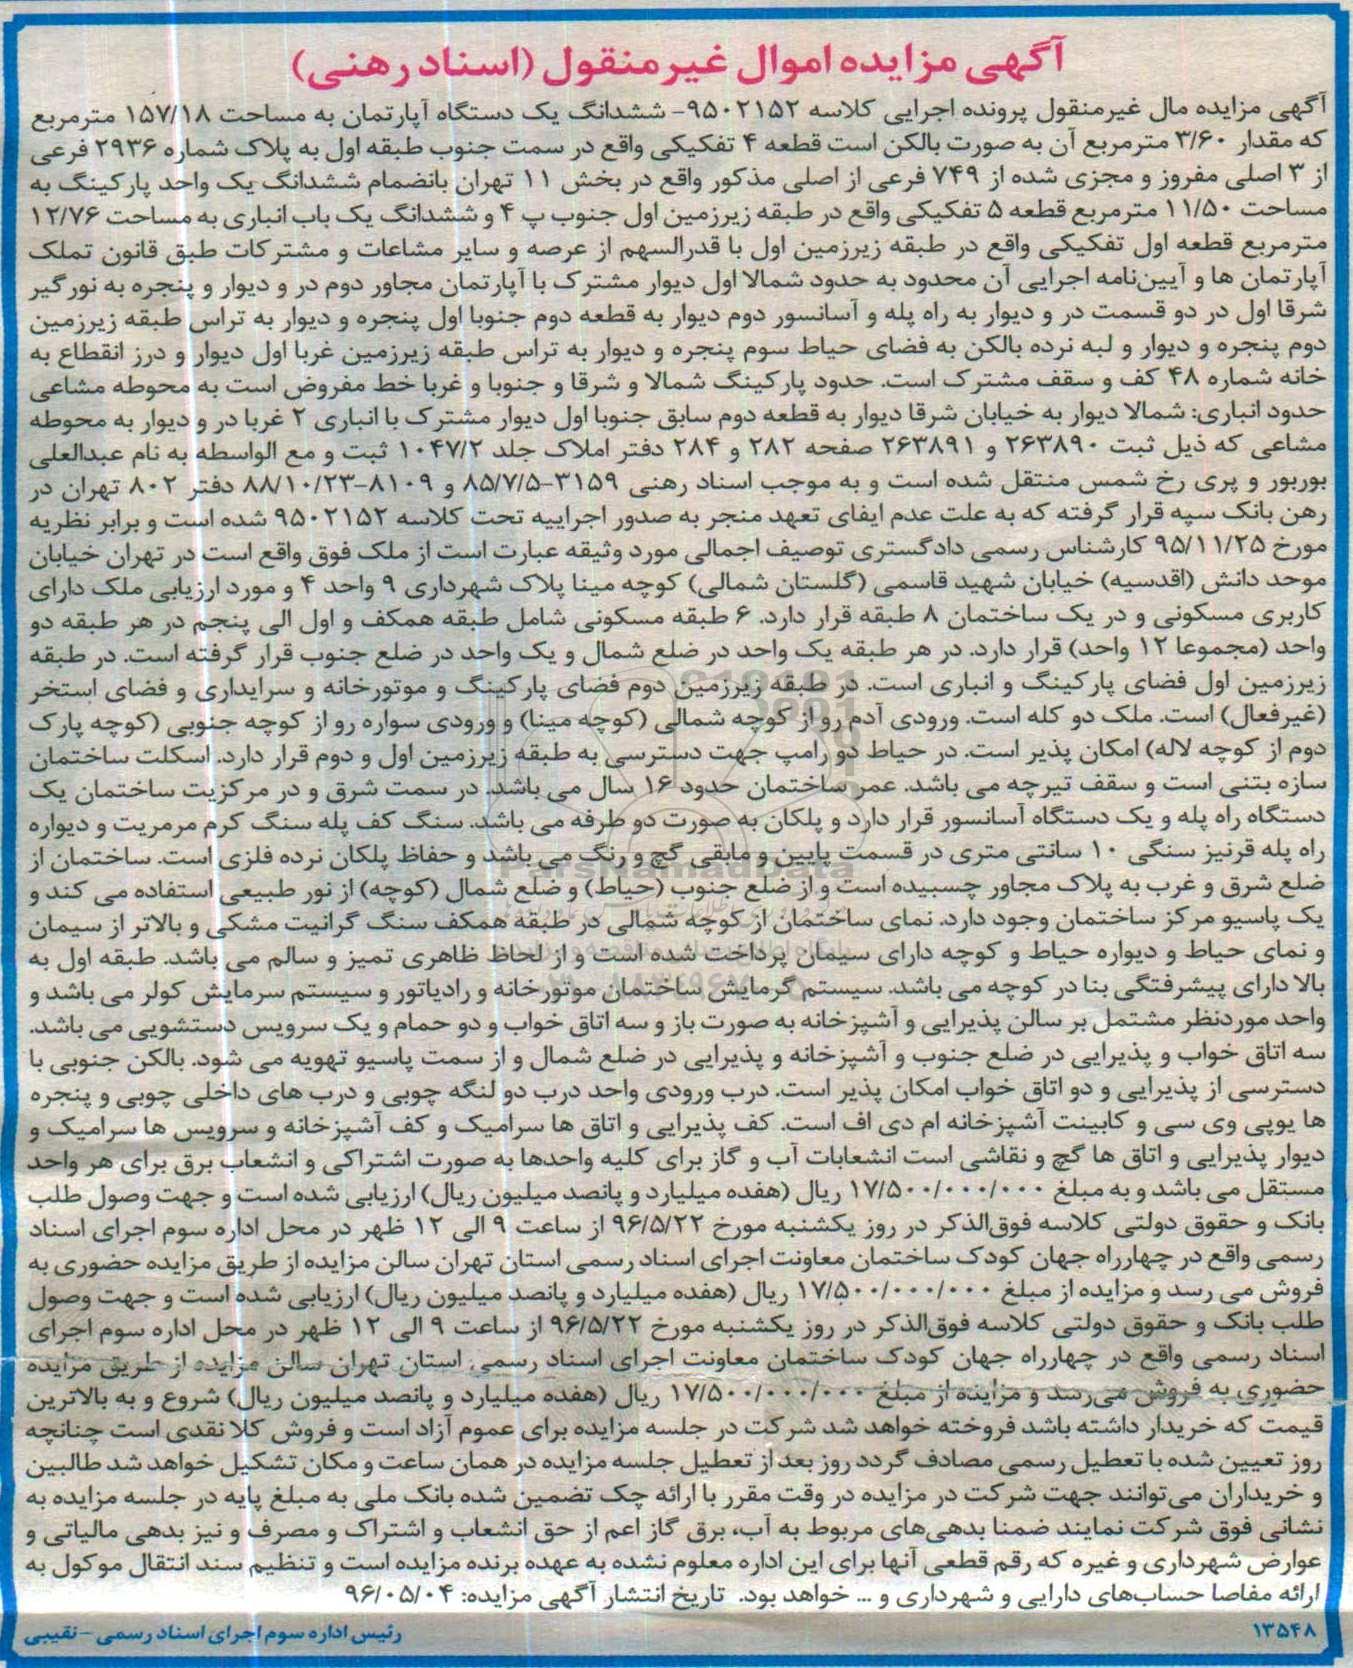 آگهی مزایده اموال غیرمنقول (اسناد رهنی)
آگهی مزایده مال غیرمنقول پرونده اجرایی کلاسه ۹۵۰۲۱۵۲- ششدانگ یک دستگاه آپارتمان به مساحت ۱۵۷/۱۸ مترمربع
که مقدار ۳/۶۰ مترمربع آن به صورت بالکن است قطعه ۴ تفکیکی واقع در سمت جنوب طبقه اول به پلاک شماره ۲۹۳۶ فرعی
از ۳ اصلی مفروز و مجزی شده از ۷۴۹ فرعی از اصلی مذکور واقع در بخش ۱۱ تهران بانضمام ششدانگ یک واحد پارکینگ به
مساحت ۱۱/۵۰ مترمربع قطعه ۵ تفکیکی واقع در طبقه زیرزمین اول جنوب پ ۴ و ششدانگ یک باب انباری به مساحت ۱۲/۷۶
مترمربع قطعه اول تفکیکی واقع در طبقه زیرزمین اول با قدرالسهم از عرصه و سایر مشاعات و مشترکات طبق قانون تملک
آپارتمان ها و آیین‌نامه اجرایی آن محدود به حدود شمالا اول دیوار مشترک با آپارتمان مجاور دوم در و دیوار و پنجره به نورگیر
شرقا اول در دو قسمت در و دیوار به راه پله و آسانسور دوم دیوار به قطعه دوم جنوبا اول پنجره و دیوار به تراس طبقه زیرزمین
دوم پنجره و دیوار و لبه نرده بالکن به فضای حیاط سوم پنجره و دیوار به تراس طبقه زیرزمین غربا اول دیوار و درز انقطاع به
خانه شماره ۴۸ کف و سقف مشترک است. حدود پارکینگ شمالا و شرقا و جنوبا و غربا خط مفروض است به محوطه مشاعی
حدود انباری: شمالا دیوار به خیابان شرقا دیوار به قطعه دوم سابق جنوبا اول دیوار مشترک با انباری ۲ غربا در و دیوار به محوطه
مشاعی که ذیل ثبت ۲۶۳۸۹۰ و ۲۶۳۸۹۱ صفحه ۲۸۲ و ۲۸۴ دفتر املاک جلد ۱۰۴۷/۲ ثبت و مع الواسطه به نام عبدالعلی
بوربور و پری رخ شمس منتقل شده است و به موجب اسناد رهنی ۳۱۵۹-۸۵/۷/۵ و ۸۱۰۹-۸۸/۱۰/۲۳ دفتر ۸۰۲ تهران در
رهن بانک سپه قرار گرفته که به علت عدم ایفای تعهد منجر به صدور اجراییه تحت کلاسه ۹۵۰۲۱۵۲ شده است و برابر نظریه
مورخ ۹۵/۱۱/۲۵ کارشناس رسمی دادگستری توصیف اجمالی مورد وثیقه عبارت است از ملک فوق واقع است در تهران خیابان
موحد دانش (اقدسیه) خیابان شهید قاسمی (گلستان شمالی) کوچه مینا پلاک شهرداری ۹ واحد ۴ و مورد ارزیابی ملک دارای
کاربری مسکونی و در یک ساختمان ۸ طبقه قرار دارد. ۶ طبقه مسکونی شامل طبقه همکف و اول الی پنجم در هر طبقه دو
واحد (مجموعا ۱۲ واحد) قرار دارد. در هر طبقه یک واحد در ضلع شمال و یک واحد در ضلع جنوب قرار گرفته است. در طبقه
زیرزمین اول فضای پارکینگ و انباری است. در طبقه زیرزمین دوم فضای پارکینگ و موتورخانه و سرایداری و فضای استخر
(غیرفعال) است. ملک دو کله است. ورودی آدم رو از کوچه شمالی (کوچه مینا) و ورودی سواره رو از کوچه جنوبی (کوچه پارک
دوم از کوچه لاله) امکان پذیر است. در حیاط دو رامپ جهت دسترسی به طبقه زیرزمین اول و دوم قرار دارد. اسکلت ساختمان
سازه بتنی است و سقف تیرچه می باشد. عمر ساختمان حدود ۱۶ سال می باشد. در سمت شرق و در مرکزیت ساختمان یک
دستگاه راه پله و یک دستگاه آسانسور قرار دارد و پلکان به صورت دو طرفه می باشد. سنگ کف پله سنگ کرم مرمریت و دیواره
راه پله قرنیز سنگی ۱۰ سانتی متری در قسمت پایین و مابقی گچ و رنگ می باشد و حفاظ پلکان نرده فلزی است. ساختمان از
ضلع شرق و غرب به پلاک مجاور چسبیده است و از ضلع جنوب (حیاط) و ضلع شمال (کوچه) از نور طبیعی استفاده می کند و
یک پاسیو مرکز ساختمان وجود دارد. نمای ساختمان از کوچه شمالی در طبقه همکف سنگ گرانیت مشکی و بالاتر از سیمان
و نمای حیاط و دیواره حیاط و کوچه دارای سیمان پرداخت شده است و از لحاظ ظاهری تمیز و سالم می باشد. طبقه اول به
بالا دارای پیشرفتگی بنا در کوچه می باشد. سیستم گرمایش ساختمان موتورخانه و رادیاتور و سیستم سرمایش کولر می باشد و
واحد موردنظر مشتمل بر سالن پذیرایی و آشپزخانه به صورت باز و سه اتاق خواب و دو حمام و یک سرویس دستشویی می باشد.
سه اتاق خواب و پذیرایی در ضلع جنوب و آشپزخانه و پذیرایی در ضلع شمال و از سمت پاسیو تهویه می شود. بالکن جنوبی با
دسترسی از پذیرایی و دو اتاق خواب امکان پذیر است. درب ورودی واحد درب دو لنگه چوبی و درب های داخلی چوبی و پنجره
ها یوپی وی سی و کابینت آشپزخانه ام دی اف است. کف پذیرایی و اتاق ها سرامیک و کف آشپزخانه و سرویس ها سرامیک و
دیوار پذیرایی و اتاق ها گچ و نقاشی است انشعابات آب و گاز برای کلیه واحدها به صورت اشتراکی و انشعاب برق برای هر واحد
مستقل می باشد و به مبلغ ۱۷/۵۰۰/۰۰۰/۰۰۰ ریال (هفده میلیارد و پانصد میلیون ریال) ارزیابی شده است و جهت وصول طلب
بانک و حقوق دولتی کلاسه فوق‌الذکر در روز یکشنبه مورخ ۹۶/۵/۲۲ از ساعت ۹ الی ۱۲ ظهر در محل اداره سوم اجرای اسناد
رسمی واقع در چهارراه جهان کودک ساختمان معاونت اجرای اسناد رسمی استان تهران سالن مزایده از طریق مزایده حضوری به
فروش می رسد و مزایده از مبلغ ۱۷/۵۰۰/۰۰۰/۰۰۰ ریال (هفده میلیارد و پانصد میلیون ریال) ارزیابی شده است و جهت وصول
طلب بانک و حقوق دولتی کلاسه فوق‌الذکر در روز یکشنبه مورخ ۹۶/۵/۲۲ از ساعت ۹ الی ۱۲ ظهر در محل اداره سوم اجرای
اسناد رسمی واقع در چهارراه جهان کودک ساختمان معاونت اجرای اسناد رسمی استان تهران سالن مزایده از طریق مزایده
حضوری به فروش می‌رسد و مزایده از مبلغ ۱۷/۵۰۰/۰۰۰/۰۰۰ ریال (هفده میلیارد و پانصد میلیون ریال) شروع و به بالاترین
قیمت که خریدار داشته باشد فروخته خواهد شد شرکت در جلسه مزایده برای عموم آزاد است و فروش کلا نقدی است چنانچه
روز تعیین شده با تعطیل رسمی مصادف گردد روز بعد از تعطیل جلسه مزایده در همان ساعت و مکان تشکیل خواهد شد طالبین
و خریداران می‌توانند جهت شرکت در مزایده در وقت مقرر با ارائه چک تضمین شده بانک ملی به مبلغ پایه در جلسه مزایده به
نشانی فوق شرکت نمایند ضمنا بدهی‌های مربوط به آب، برق گاز اعم از حق انشعاب و اشتراک و مصرف و نیز بدهی مالیاتی و
عوارض شهرداری و غیره که رقم قطعی آنها برای این اداره معلوم نشده به عهده برنده مزایده است و تنظیم سند انتقال موکول به
ارائه مفاصا حساب‌های دارایی و شهرداری و ... خواهد بود. تاریخ انتشار آگهی مزایده: ۹۶/۰۵/۰۴
۱۳۵۴۸ رئیس اداره سوم اجرای اسناد رسمی - نقیبی
ParsNamadData